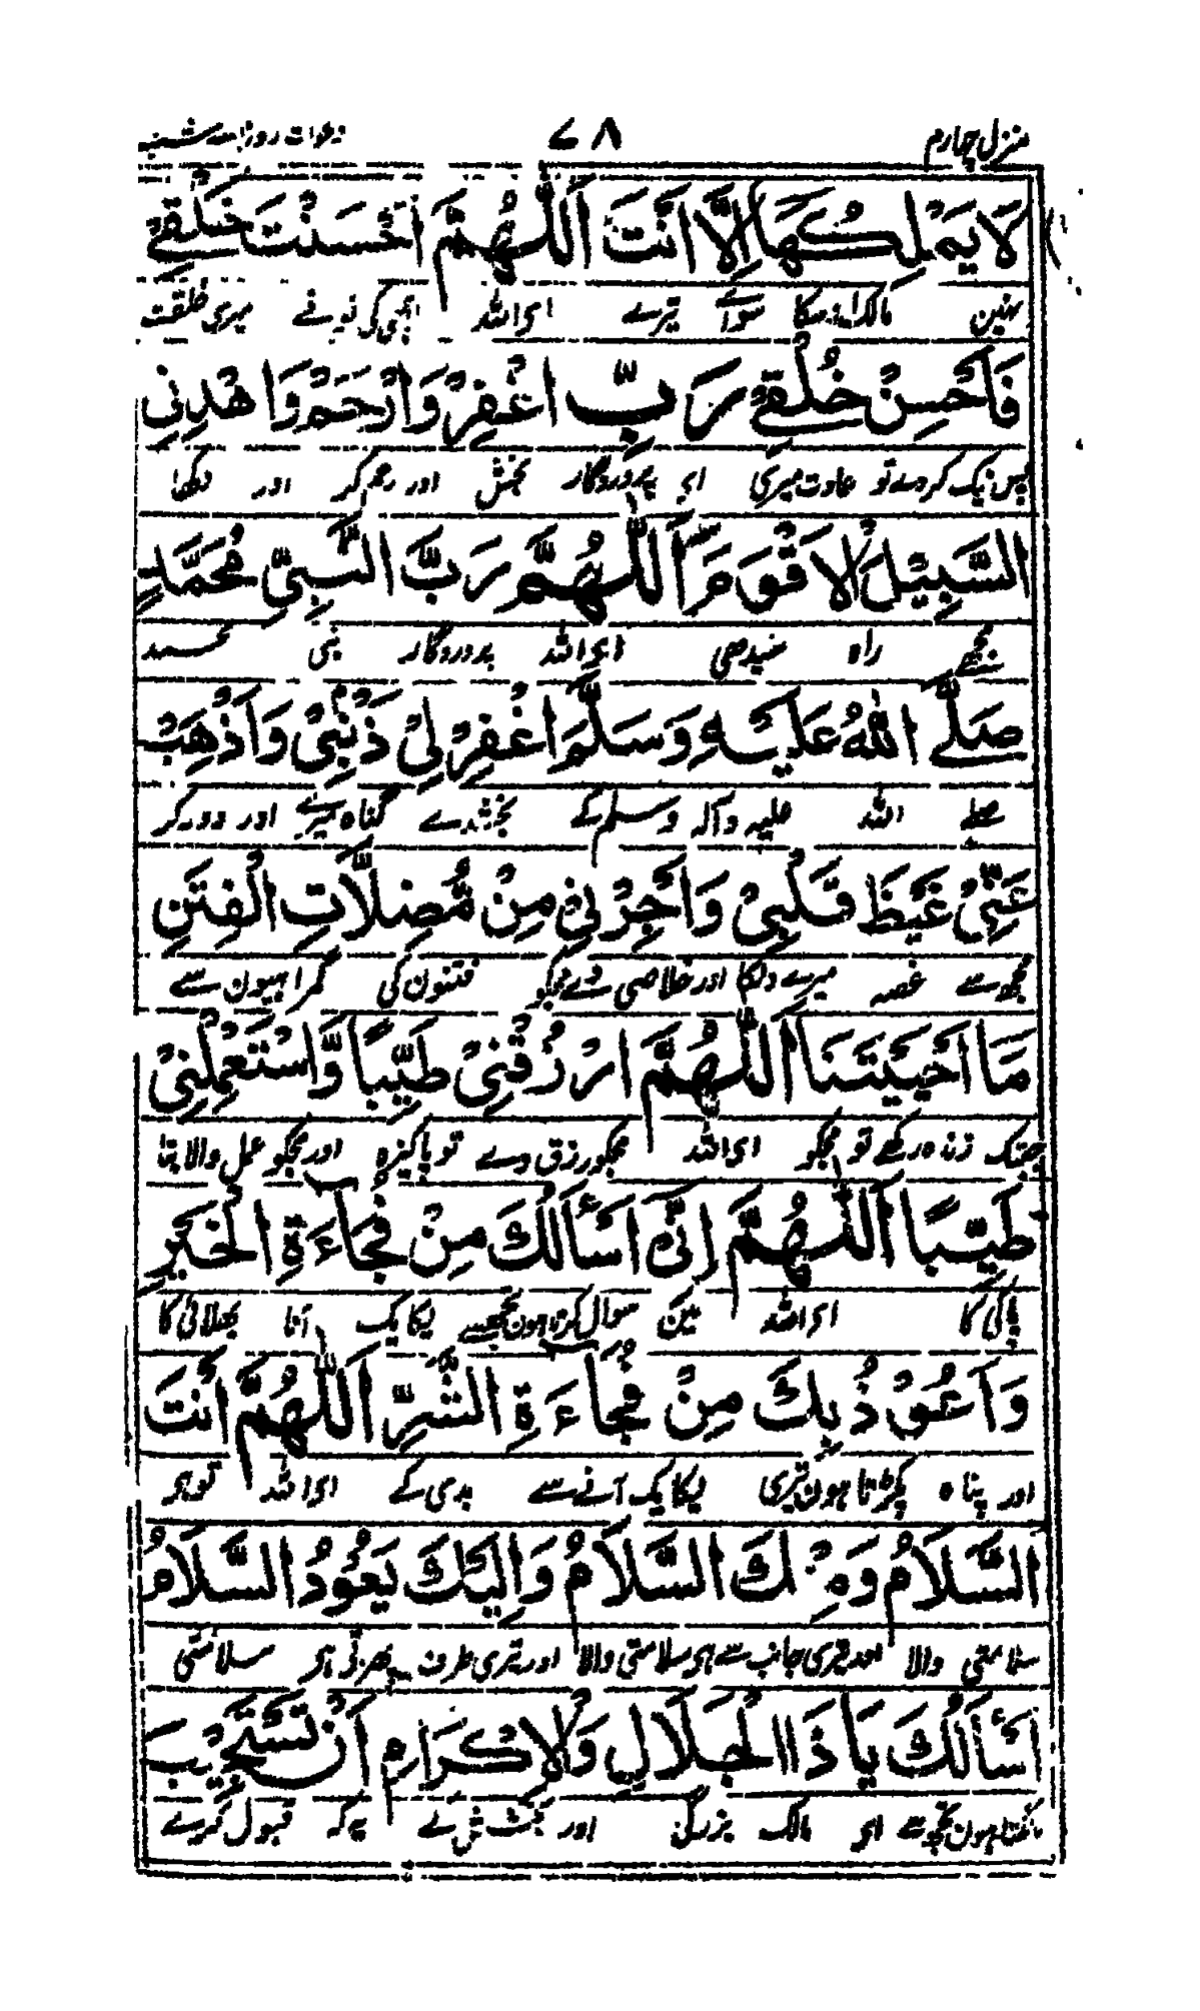 منزل چهارم ۷۸ دعوات روز سه شنبه
لَا يَمْلِكُهَا إِلَّا أَنْتَ اَللّٰهُمَّ اَحْسَنْتَ خَلْقِيْ
نہین مالک سکا سوائے تیرے ای اللہ اچھی کی تو نے میری خلقت
فَاَحْسِنْ خُلُقِيْ رَبِّ اغْفِرْ وَارْحَمْ وَاهْدِنِي
پس نیک کر دے تو عادت میری ای پروردگار بخش اور رحم کر اور دکھا
السَّبِيْلَ الْاَقْوَمَ اَللّٰهُمَّ رَبَّ النَّبِيِّ مُحَمَّدٍ
مجھے راہ سیدھی ای اللہ پروردگار نبی محمد
صَلَّى اللّٰهُ عَلَيْهِ وَسَلَّمَ اغْفِرْ لِيْ ذَنْبِيْ وَاَذْهِبْ
صلے اللہ علیہ وآلہ وسلم کے بخشدے گناہ میرے اور دور کر
عَنِّيْ غَيْظَ قَلْبِيْ وَاَجِرْنِيْ مِنْ مُّضِلَّاتِ الْفِتَنِ
مجھ سے غصہ میرے دلکا اور خلاصی دے مجکو فتنون کی گمراہیون سے
مَا اَحْيَيْتَنَا اَللّٰهُمَّ ارْزُقْنِيْ طَيِّبًا وَّاسْتَعْمِلْنِيْ
جبتک زندہ رکھے تو مجکو ای اللہ مجکو رزق دے تو پاکیزہ اور مجکو عمل والا بنا
طَيِّبًا اَللّٰهُمَّ اِنِّيْ اَسْأَلُكَ مِنْ فُجَاءَةِ الْخَيْرِ
پاکی کا ای اللہ مین سوال کرتا ہون تجھسے یکایک آنا بھلائی کا
وَاَعُوْذُ بِكَ مِنْ فُجَاءَةِ الشَّرِّ اَللّٰهُمَّ اَنْتَ
اور پناہ پکڑتا ہون تیری یکایک آنے سے بدی کے ای اللہ تو ہی
السَّلَامُ وَمِنْكَ السَّلَامُ وَاِلَيْكَ يَعُوْدُ السَّلَامُ
سلامتی والا اور تیری جانب سے ہی سلامتی والا اور تیری طرف پھرتی ہی سلامتی
اَسْأَلُكَ يَا ذَا الْجَلَالِ وَالْاِكْرَامِ اَنْ تَسْتَجِيْبَ
مانگتا ہون تجھ سے ای مالک بزرگی اور بخشش کے یہ کہ قبول کرے